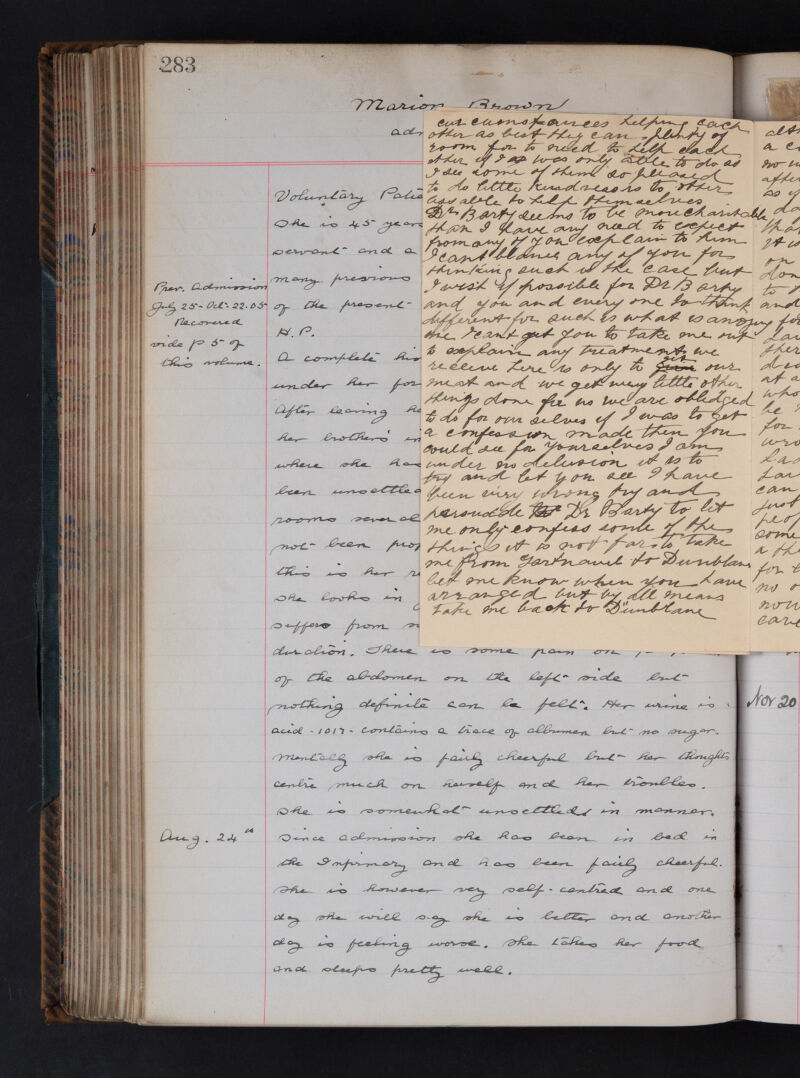 283
Marion Brown
adm
Voluntary Patie
She is 45 years
servant and a
many previous
of the present
H.P.
A complete his
under her for
After leaving he
her brother's in
where she has
been unsettled
rooms several
not been prop
this is her re
She looks in g
suffers from
duration. There is some pain on
of the abdomen on the left side but
nothing definite can be felt. Her urine is
acid - 1017 - contains a trace of albumen but no sugar.
Mentally she is fairly cheerful but her thoughts
centre much on herself and her troubles.
She is somewhat unsettled in manner.
Prev. Admission
July 25 - Oct. 22. 05
Recovered
vide p 5 of
this volume.
Aug. 24th
Since admission she has been in bed in
the Infirmary and has been fairly cheerful.
She is however very self-centred and one
day she will say she is better and another
day is feeling worse. She takes her food
and sleeps pretty well.
circumstances helping each
other as best they can plenty of
room for to need to help each
other if I was only able to do as
I see some of them so pleased
to do little kindnesses to other
less able to help themselves
Dr Barty seems to be more charitable
than I have any need to expect
from any of you explain to him
I cant blame any of you for
thinking such is the case but
I wish if possible for Dr Barty
and you and every one to think
different for such is what is annoying
me I cant get you to take me out
to explain any treatments we
receive here is only to get our
meat and we get very little other
things done for us we are obledged
to do for our selves if I was to get
a confession made then you
could see for yourselves I am
under no delusion it is to
try and let you see I have
been very wrong try and
persuade Dr Barty to let
me only confess some of the
things it is not far to take
me from Gartnavel to Dunblane
let me know when you have
arranged but by all means
take me back to Dunblane
Nov 20